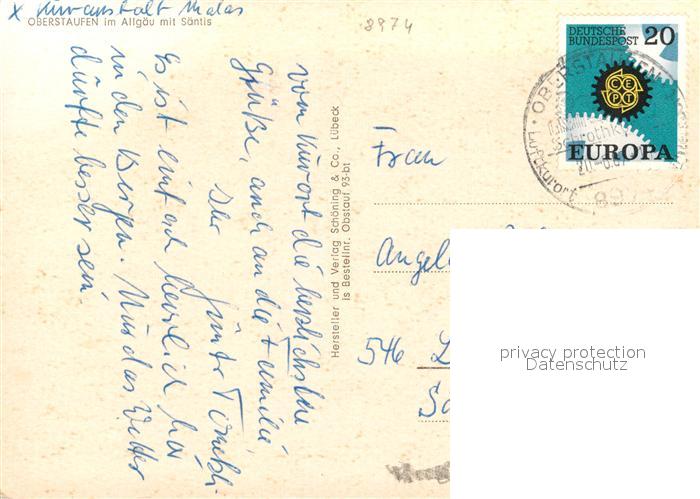 x Kuranstalt
OBERSTAUFEN im Allgäu mit Säntis
8974
vom Kurort die herzlichsten
Grüße, auch an die Familie,
Dir Günter
Es ist einfach herrlich hier
in den Bergen. Nur das Wetter
dürfte besser sein.
Hersteller und Verlag Schöning & Co., Lübeck
js Bestellnr. Obstauf 93-bt
DEUTSCHE
BUNDESPOST 20
CEPT
EUROPA
OBERSTAUFEN
Schrothk
Luftkurort
897
Frau
546
privacy protection
Datenschutz